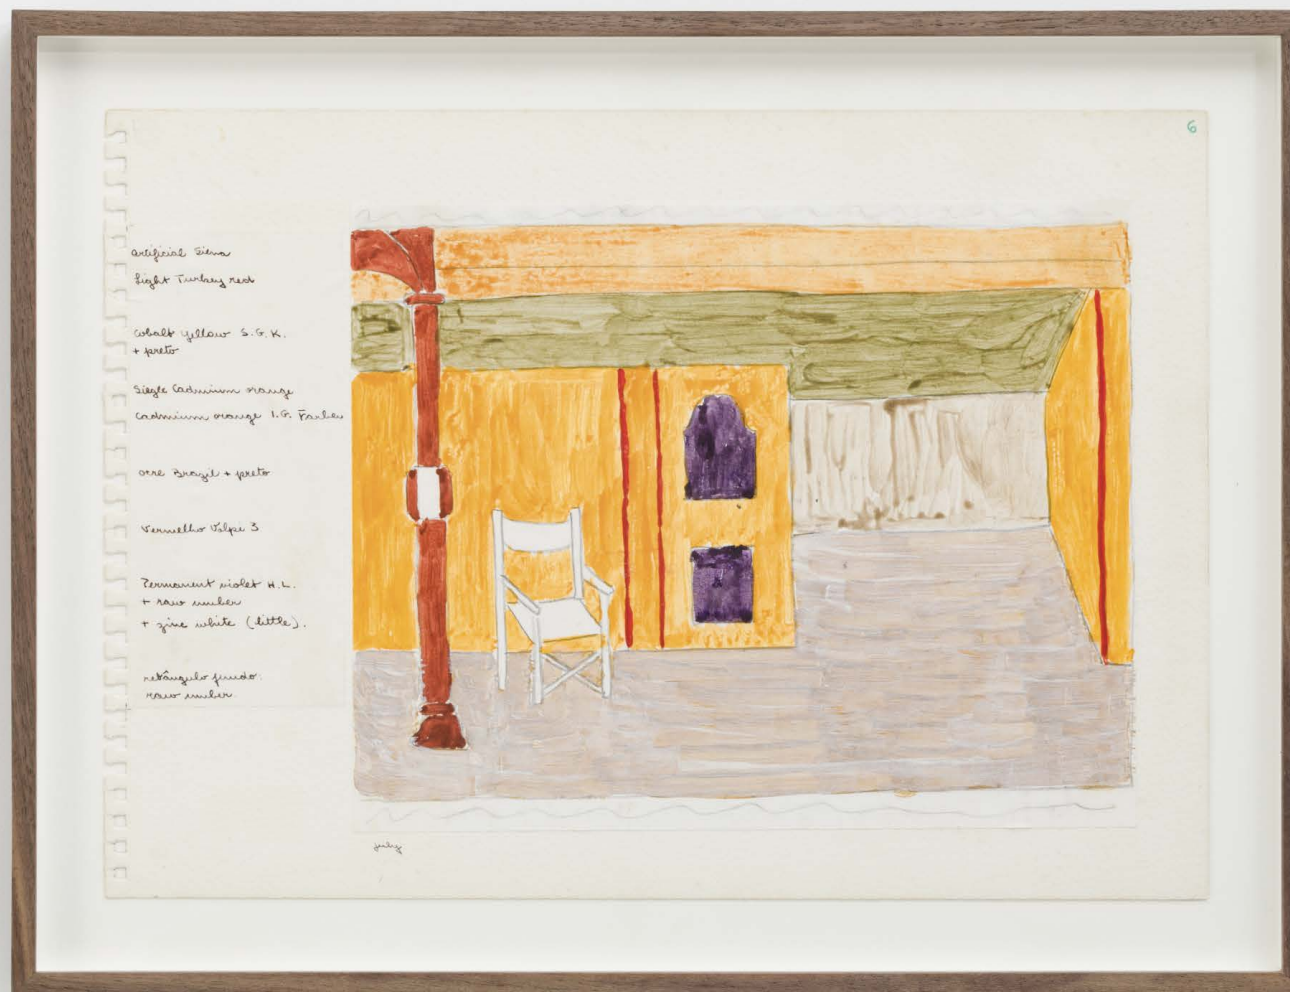 6
artificial Siena
Light Turkey red
Cobalt yellow S.G.K.
+ preto
Siegle Cadmium orange
Cadmium orange I.G. Farben
ocre Brazil + preto
Vermelho Volpi 3
Permanent violet H.L.
+ raw umber
+ zinc white (little).
retângulo fundo:
raw umber
july